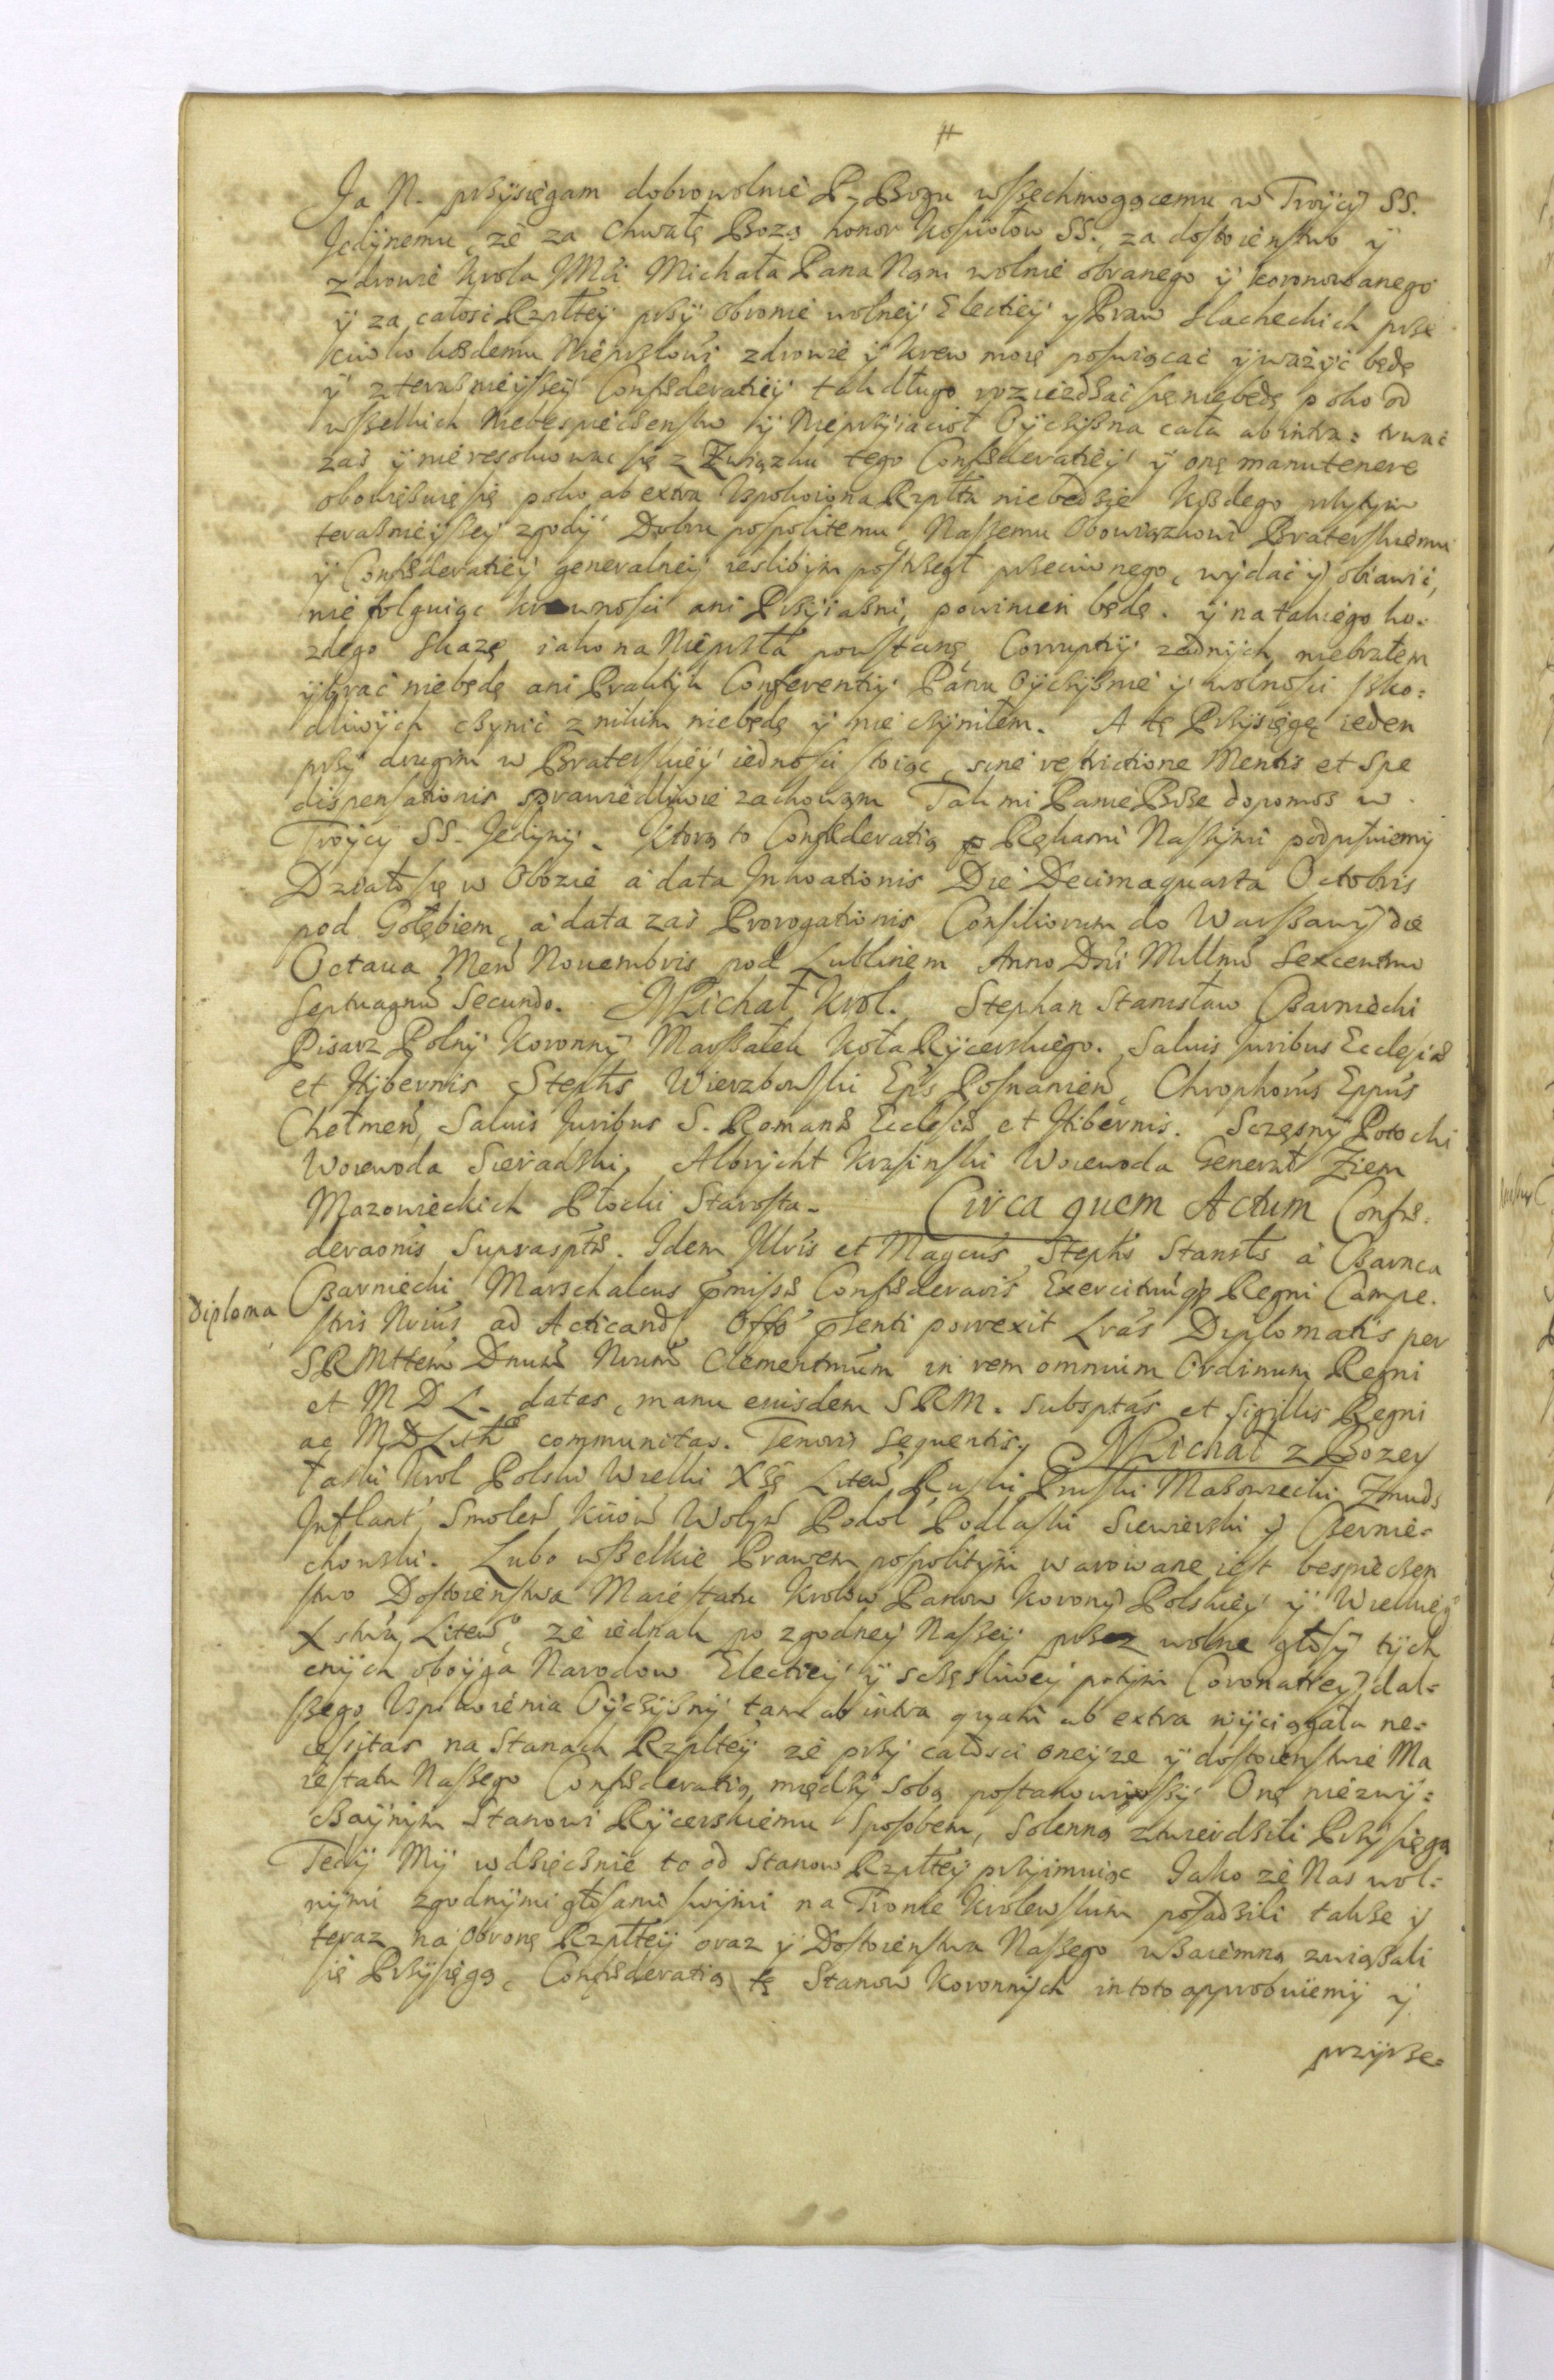 #
Ja N. przÿsięgam dobrowolnie P. Bogu wszechmogącemu w Troÿcÿ SS.
Jedÿnemu, że za Chwałę Bozą honor Kosciołow SS. za dostoienstwo ÿ
zdrowie Krola JMći Michała Pana Nam wolnie obranego ÿ koronowanego
ÿ za całosć Rzpltey przÿ obronie wolneÿ Electieÿ y Praw slacheckich prze
ciwko kożdemu Nieprzlowi zdrowie ÿ krew moię poswiącać ÿ ważÿć będę
ÿ z teraznieÿszeÿ Confœderatieÿ tak długo rozieżdzać się niebędę poko od
wszelkich Niebespieczenstw ÿ Nieprzÿiacioł Oÿczÿzna cała ab intra: trwać
zaś ÿ nie resolwować się z Związku tego Confœderatieÿ ÿ onę manutenere
obowięzuię się poko ab extra Uspokoiona Rzplta niebędzie Kożdego
teraznieÿszeÿ zgodÿ Dobru pospolitemu, Naszemu Obowiązkowi Braterskiemu
ÿ Confœderatieÿ generalneÿ ieslibÿm postrzegł przeciwnego, wÿdać ÿ obiawić,
nie folguiąc krewnosci ani Przÿiazni, powinien będę. ÿ na takiego ko-
zdego skazę iako na Nieprzla powstanę Corruptiÿ zadnÿch niebrałem
ÿ brać niebędę ani Praktÿk Conferentiÿ Panu Oÿczÿznie ÿ wolnosci szko:
dliwÿch czÿnić z nikim niebędę ÿ nie czÿniłem. A tę Przÿsięgę ieden
przÿ drugim w Braterskieÿ iednosci stoiąc, sine restrictione Mentis et spe
dispensationis sprawiedliwie zachowam Tak mi Panie Boże dopomoz w
Troÿcÿ SS. Jedÿnÿ. Ktorą to Confœderatią Rękami Naszÿmi podpisuiemÿ
Działo się w Obozie à data Inchoationis Die Decimaquarta Octobris
pod Gołębiem, à data zaś Prorogationis Consiliorum do Warszawÿ die
Octaua Men̄ Nouembris pod Lublinem Anno Dn̄i Millm̄o Sexcentmo
Septuagm̄o Secundo. Michał Krol. Stephan Stanisław Czarniecki
Pisarz Polnÿ Koronnÿ Marszałek Koła Rÿcerskiego. Saluis Juribus Ecclesiæ
et Hÿbernis Steph̄s Wierzbowski Ep̄s Posnanien̄, Chrophorus Eppūs
Chełmen̄, Saluis Juribus S. Romanæ Ecclesiæ et Hibernis. Sczęsnÿ Potocki
Woiewoda Sieradzki, Albrÿcht Krasinski Woiewoda Generał Ziem
Mazowieckich Płocki Starosta. Circa quem Actum Confœ-
deraonis Suprasptæ. Idem Jllris et Magcus Stephs Stansls à Czarnca
Czarniecki Marschalcus p̄missæ Confœderaōis Exercitumqz Regni Campe-
Diploma
stris Nrius ad Acticand. Offo p̄senti porrexit Lrās Diplomatis per
SRMttem Dnum Nrum Clementmum in rem omnium Ordinum Regni
et MDL. datas, manu eiusdem SRM. subsptās et Sigillis Regni
ac MDLith communitas. Tenoris sequentis. Michał z Bozey
łaski Krol Polski Wielki Xżę Litew̄, Ruski Pruski Mazowiecki Zmudz
Inflant Smolen̄ Kiiow̄ Wolyn̄ Podol Podlaski Siewierski ÿ Czernie-
chowski. Lubo wszelkie Prawem pospolitÿm warowane iest bespieczen
stwo Dostoienstwa Maiestatu Krolow Panow Koronÿ Polskieÿ ÿ Wielkieg°
Xstwa Litew°, że iednak po zgodneÿ Naszeÿ przez wolne głosÿ tÿch
cnÿch oboÿga Narodow Electieÿ ÿ sczęsliweÿ potÿm Coronatieÿ, dal-
szego Uspokoienia Oÿczÿznÿ tam ab intra quam ab extra wÿciągała ne-
cessitas na Stanach Rzpltey że przÿ całosci oneÿże ÿ dostoienstwie Ma
iestatu Naszego Confœderatią międzÿ sobą postanowiwszÿ Onę niezwÿ:
czaÿnÿm Stanowi Rÿcerskiemu Sposobem, Solenną ztwierdzili Przÿsięgą
Tedÿ Mÿ wdzięcznie to od Stanow Rzpltey przÿimuiąc Jako że Nas wol-
nÿmi zgodnÿmi głosami swÿmi na Tronie Krolewskim posadzili takze ÿ
teraz na obronę Rzpltey oraz ÿ Dostoienstwa Naszego wzaiemną związali
się Przÿsięgą, Confœderatią tę Stanow Koronnÿch in toto approbuiemÿ ÿ
przÿrze-